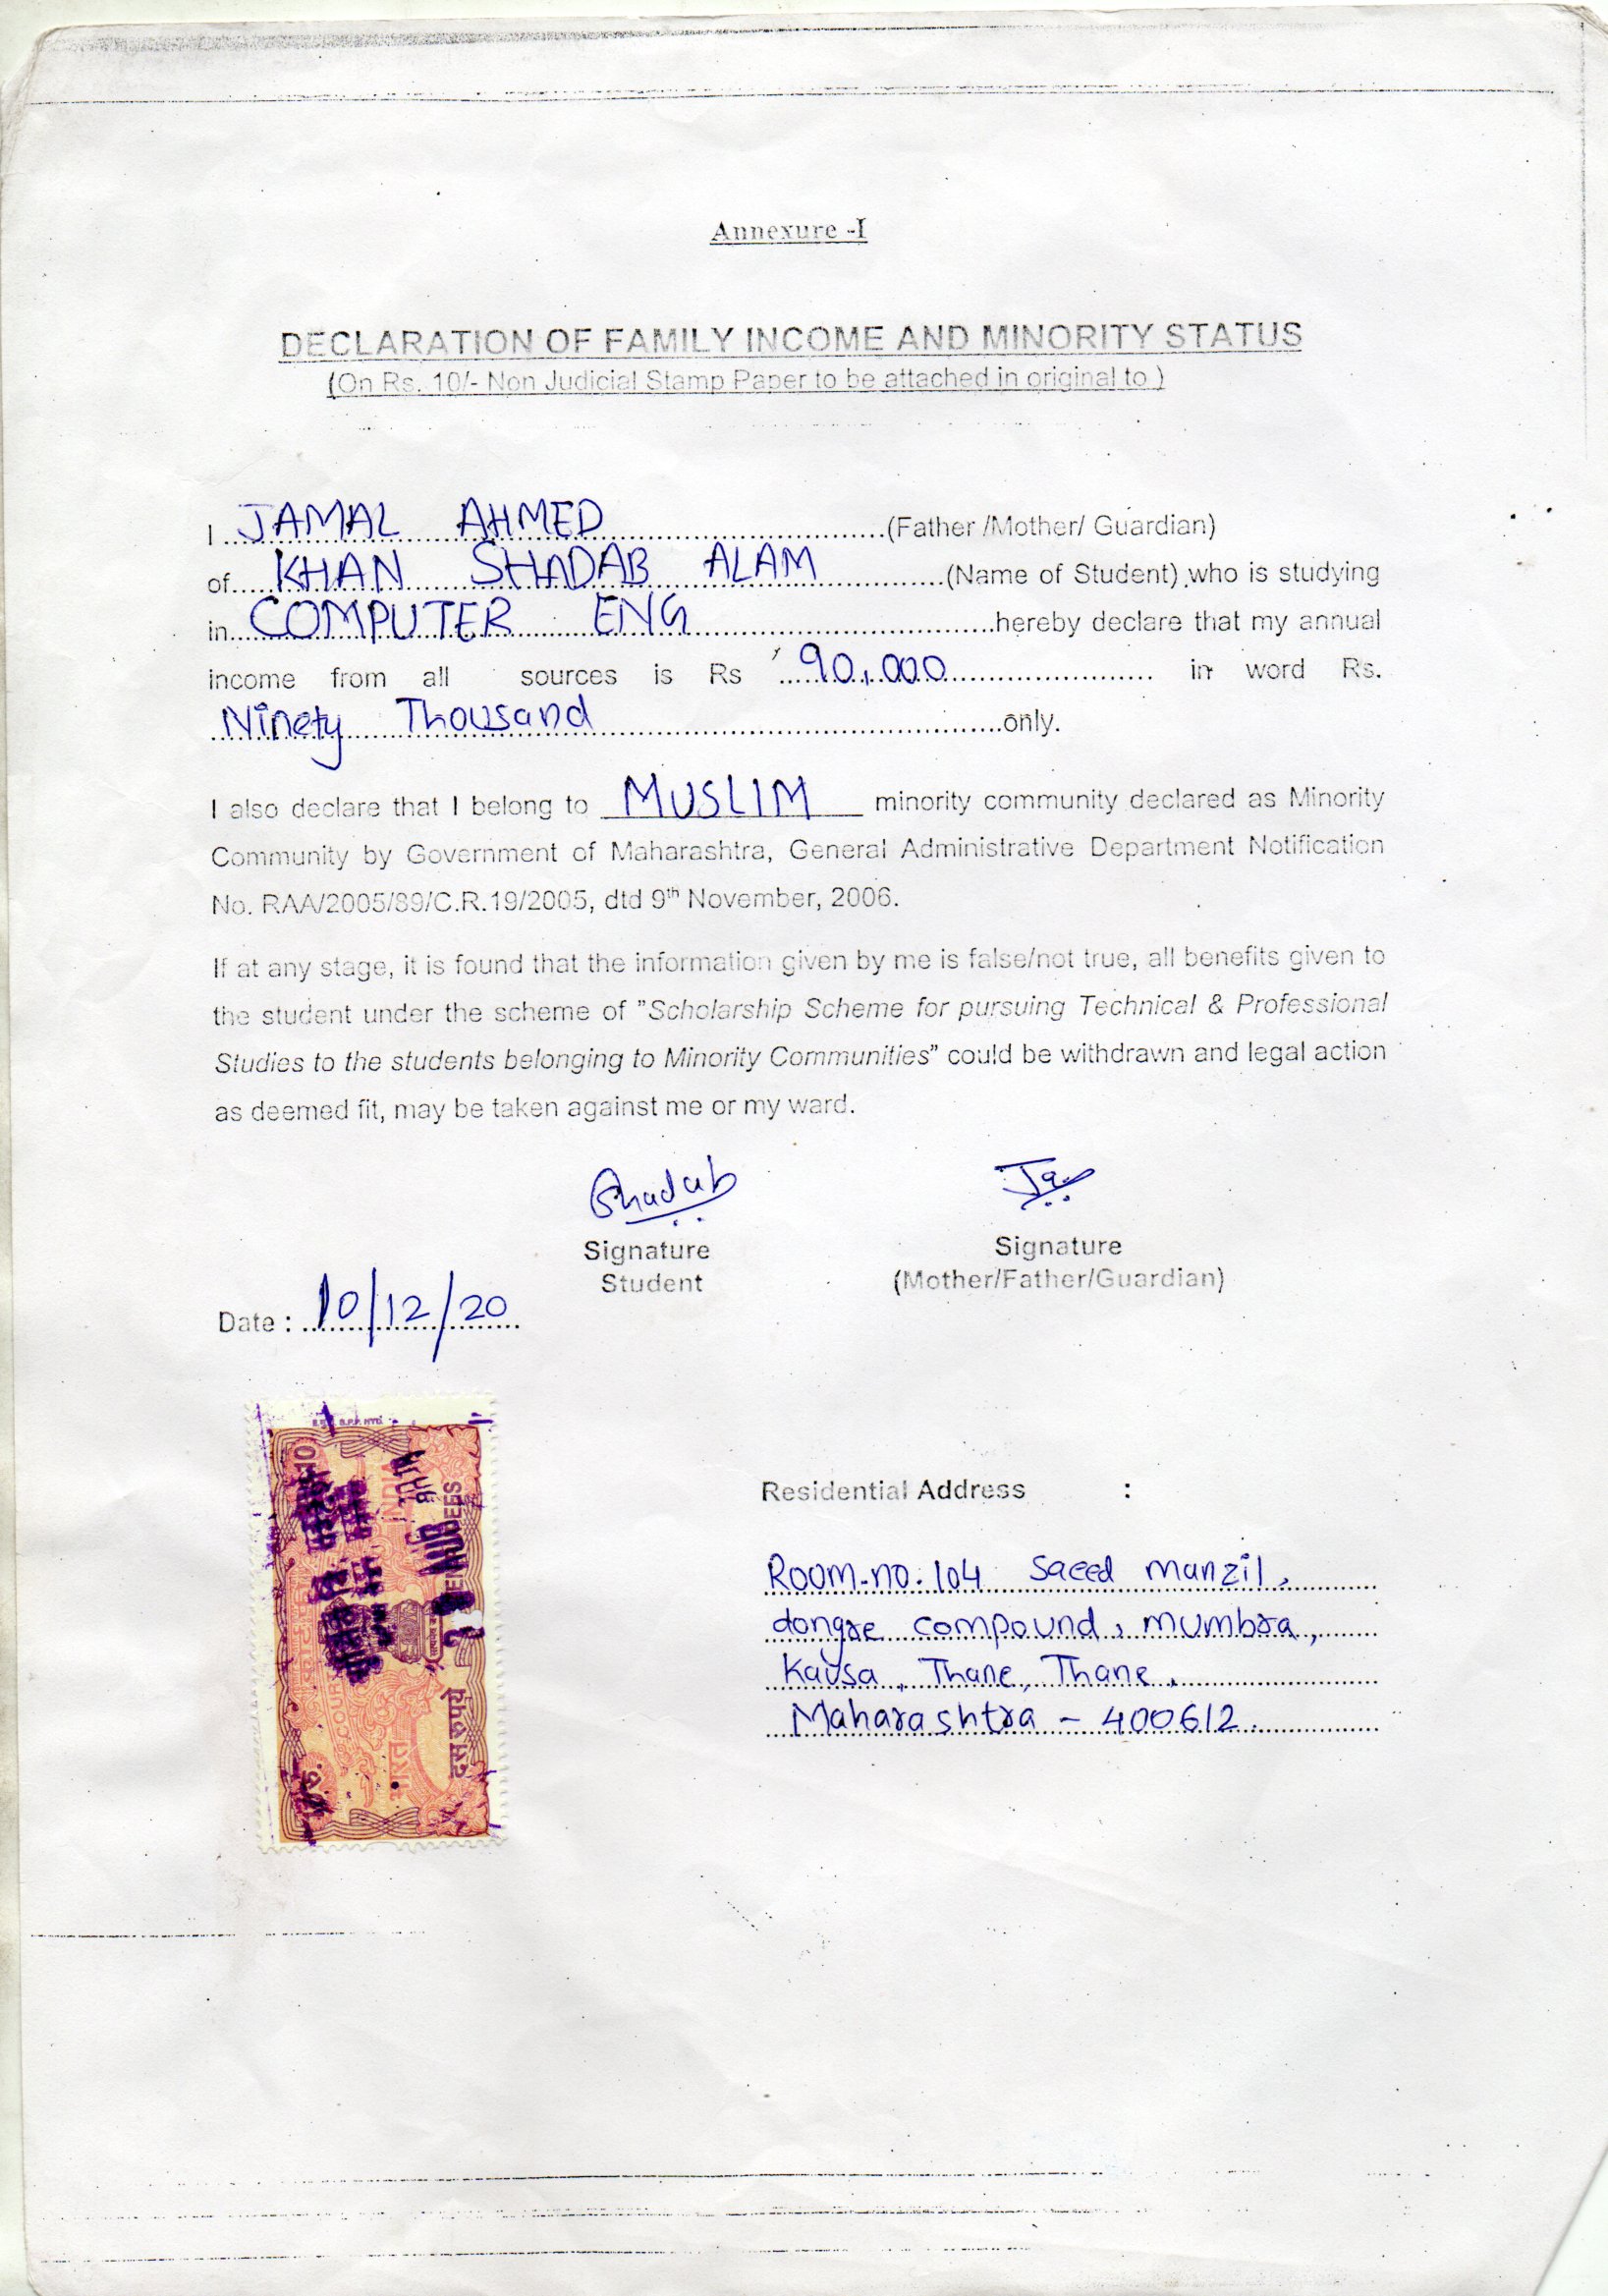 Annexure -I
DECLARATION OF FAMILY INCOME AND MINORITY STATUS
(On Rs. 10/- Non Judicial Stamp Paper to be attached in original to )
I JAMAL AHMED (Father /Mother/ Guardian)
of KHAN SHADAB ALAM (Name of Student) who is studying
in COMPUTER ENG hereby declare that my annual
income from all sources is Rs 90,000 in word Rs.
Ninety Thousand only.
I also declare that I belong to MUSLIM minority community declared as Minority
Community by Government of Maharashtra, General Administrative Department Notification
No. RAA/2005/89/C.R.19/2005, dtd 9th November, 2006.
If at any stage, it is found that the information given by me is false/not true, all benefits given to
the student under the scheme of ”Scholarship Scheme for pursuing Technical & Professional
Studies to the students belonging to Minority Communities” could be withdrawn and legal action
as deemed fit, may be taken against me or my ward.
Shadab Ja
Signature Signature
Student (Mother/Father/Guardian)
Date : 10/12/20
INDIA
भारत
दस रुपये
Residential Address :
Room-no. 104 Saeed manzil,
dongre compound, mumbra,
Kausa, Thane, Thane,
Maharashtra - 400612.